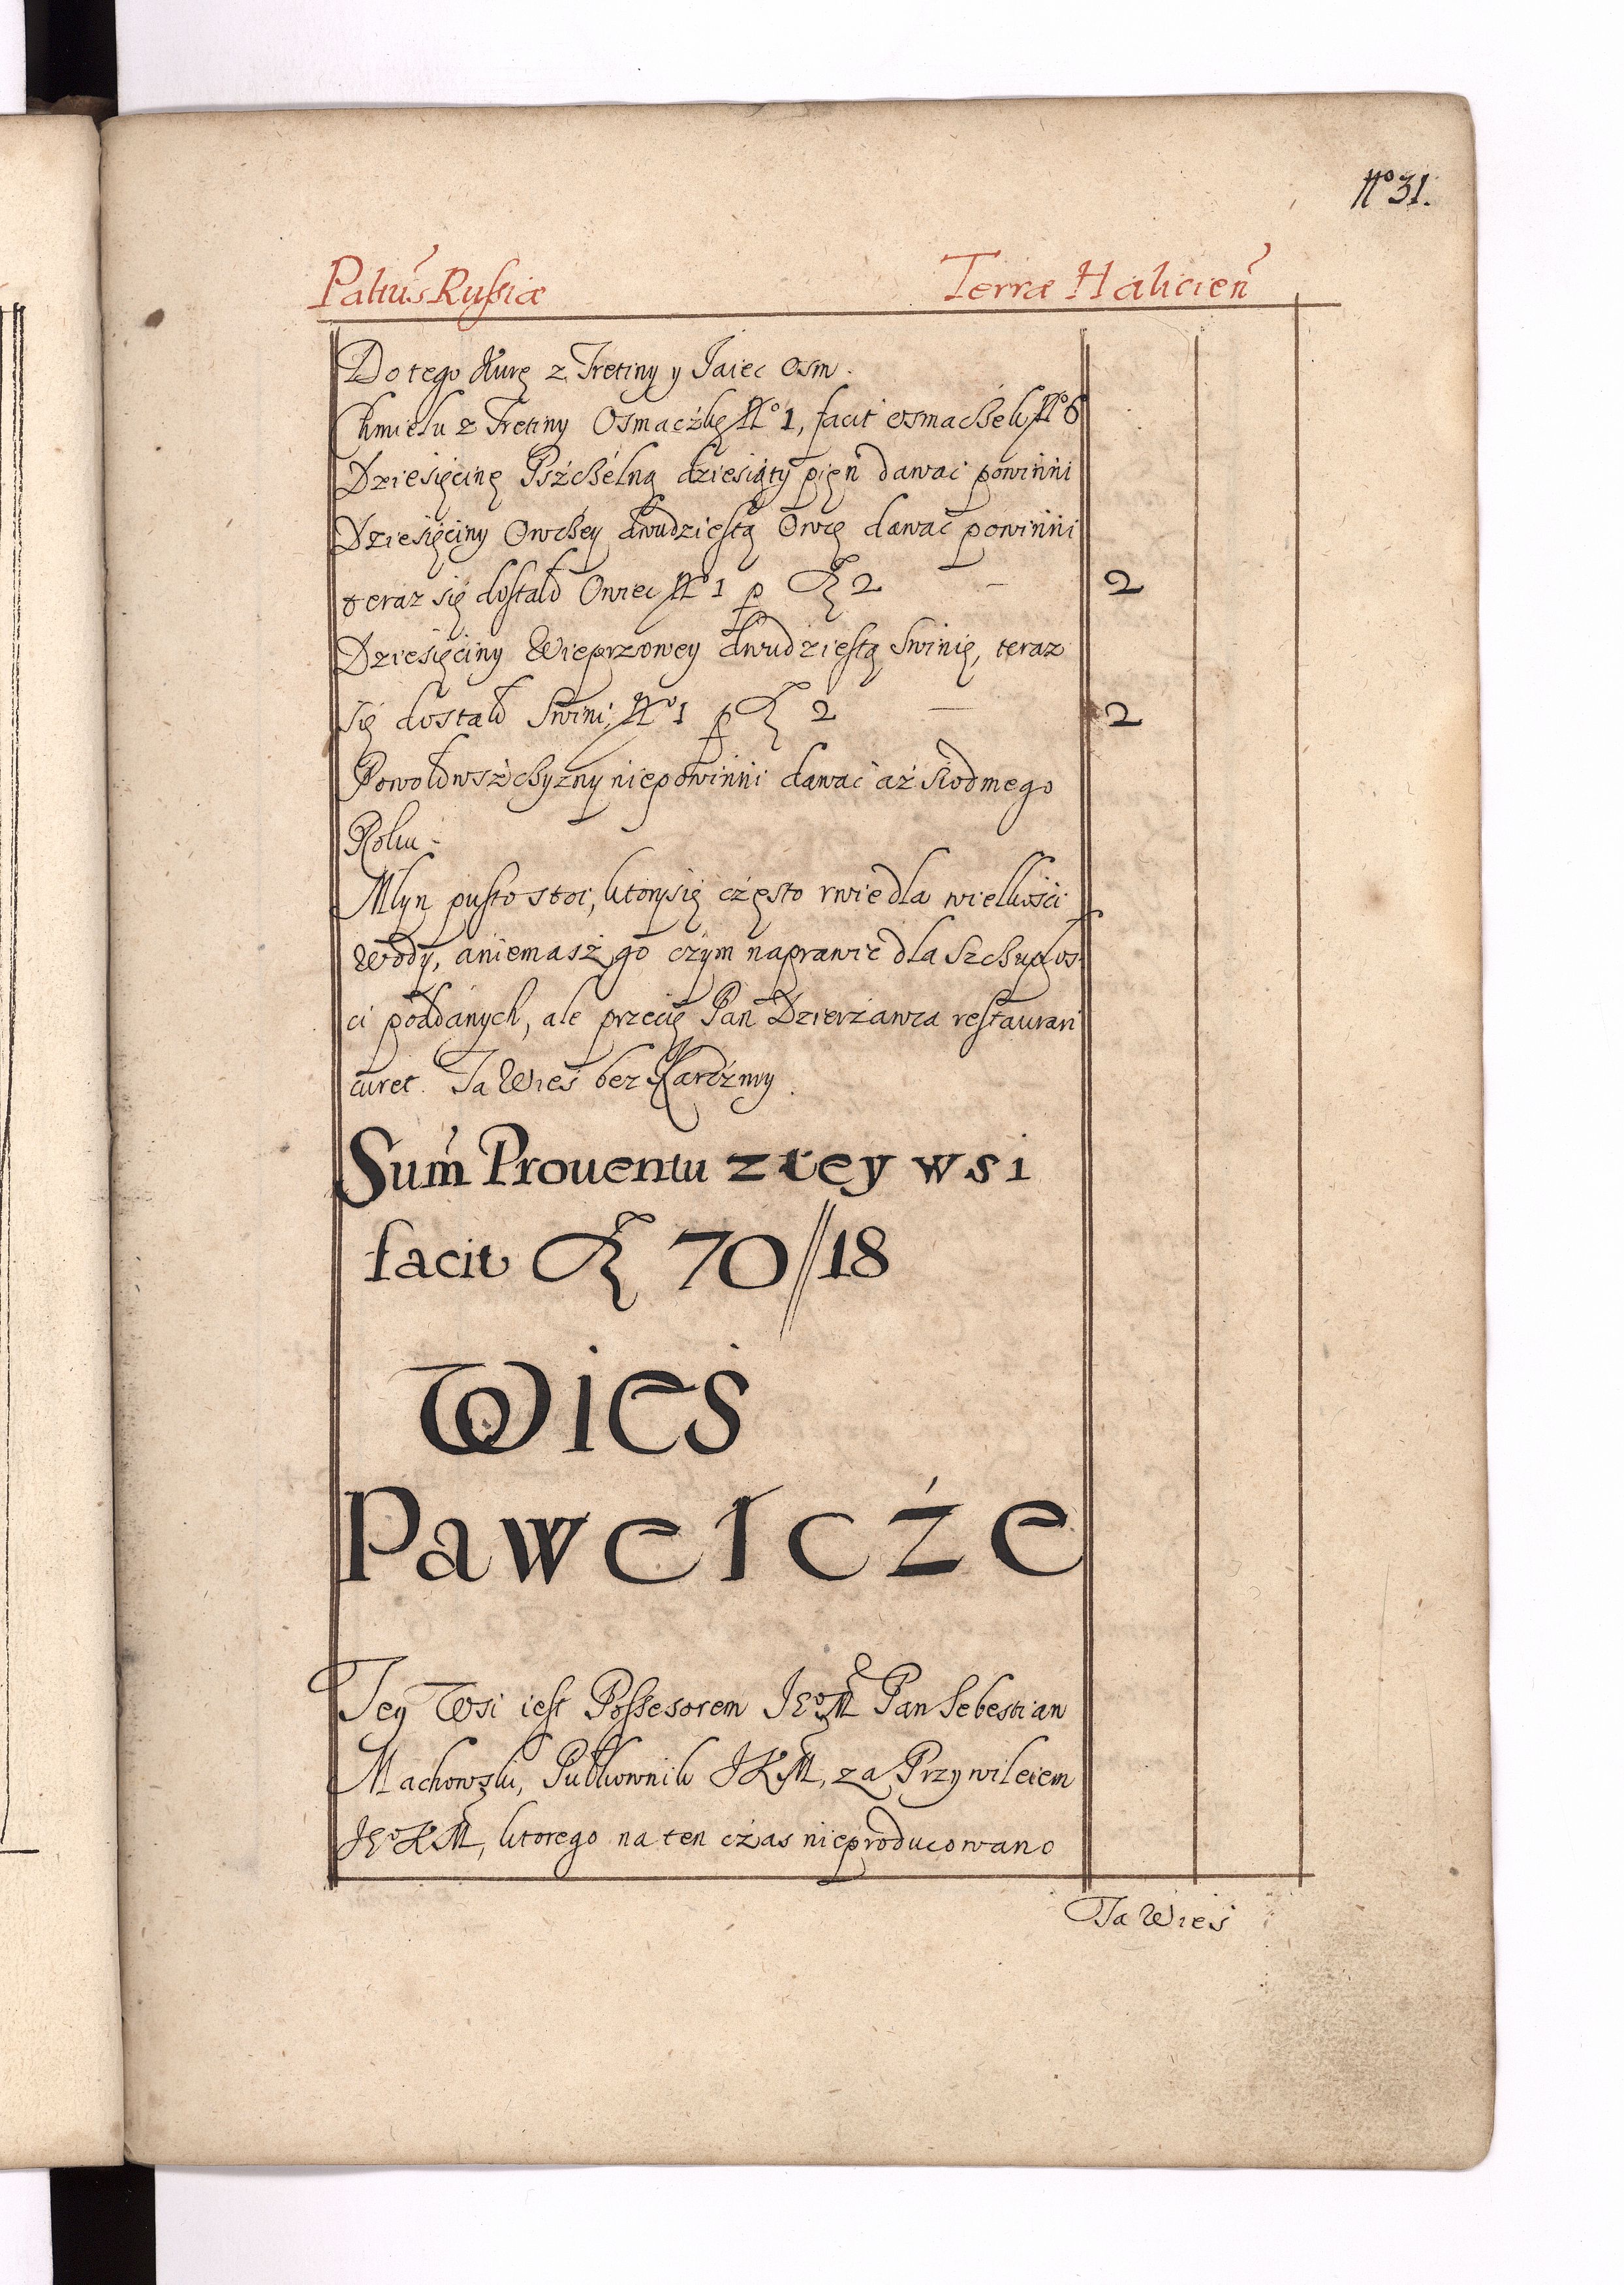 No 31.
Palnũs Russiæ Terræ Halicień
Do tego Kurę z Tretiny y Jaiec Osm.
Chmielu z Tretiny Osmaćżkę No 1, facit osmaczek No 6
Dziesięcinę Pszczelną dziesiąty pień dawać powinni
Dziesięciny Owczey dwudziestą Owcę dawać powinni
teraz się dostało Owiec No 1 p zł 2 — 2
Dziesięciny Wieprzowey dwudziestą Swinię, teraz
się dostało Swini No 1 p zł 2 — 2
Powołowszczyzny niepowinni dawać aż siodmego
Roku.
Młyn pusto stoi, ktory się często rwie dla wielkości
Wody, aniemasz go czym naprawić dla szczupłos-
ci poddanych, ale przecię Pan Dzierżawca restaurari
curet. Ta Wieś bez Karczmy.
Sum̃ Prouentu z tey wsi
facit zł 70//18
Wieś
Pawelcże
Tey Wsi iest Possesorem JEoM Pan Sebestian
Machowski, Pułkownik JKM, za Przywileiem
JEoKM, ktorego na ten czas nieproducowano
Ta Wieś